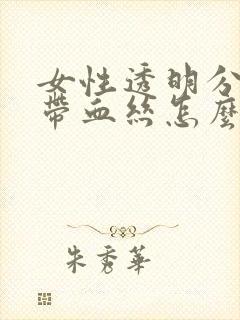 女性透明分
帶血絲怎麼
朱秀華